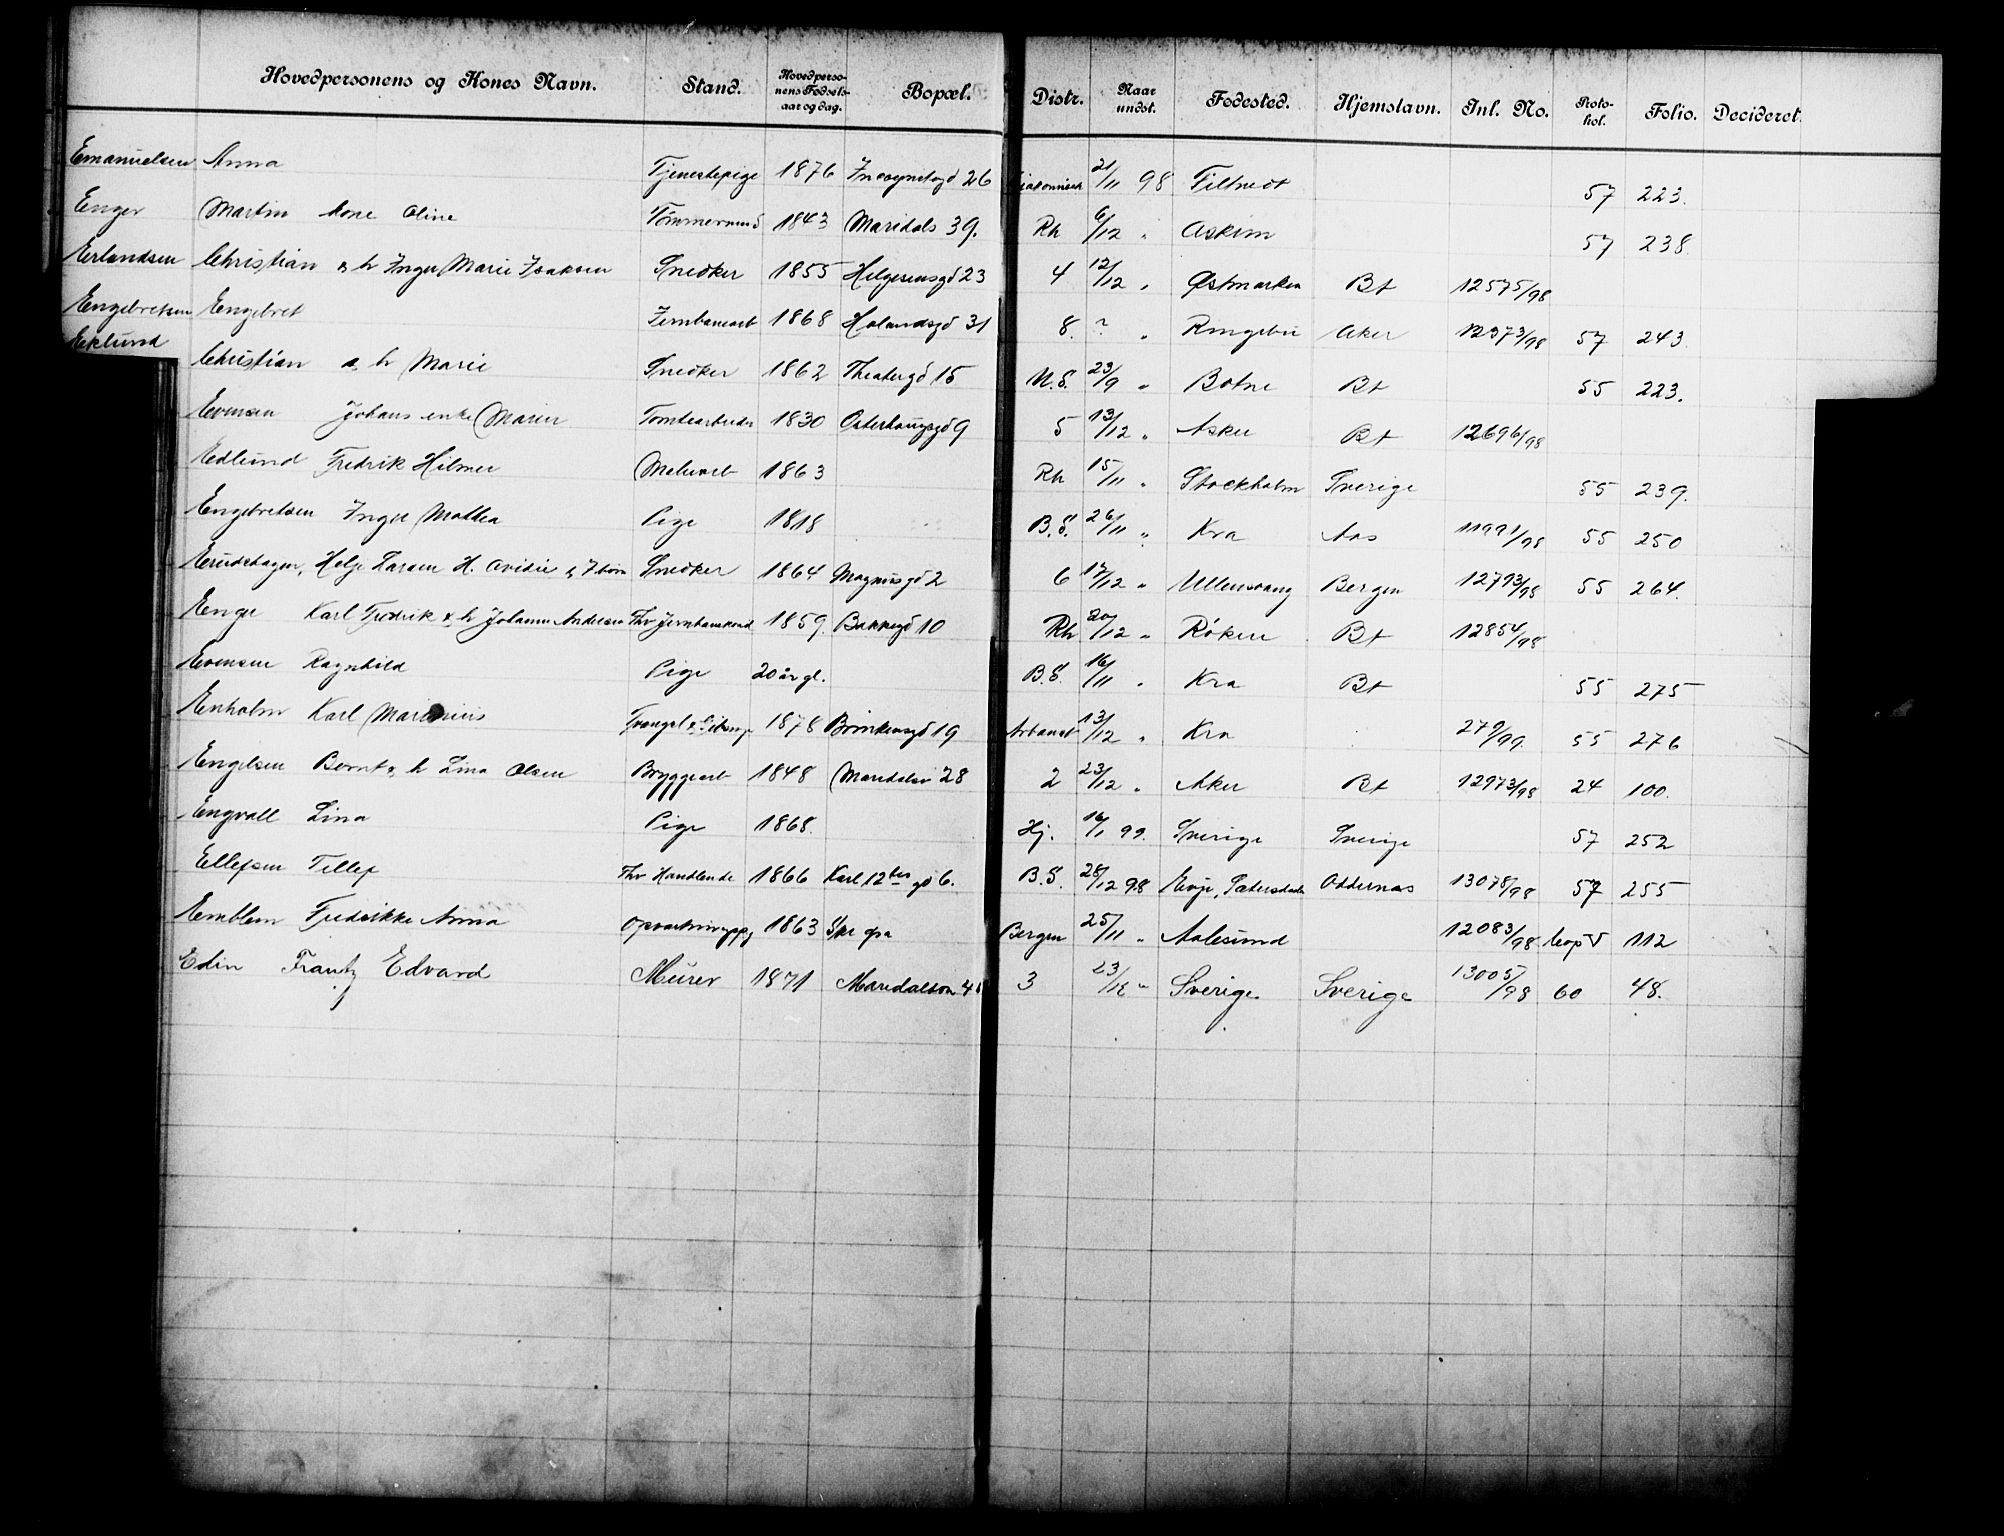 Hovedpersonens og Kones Navn. Stand. Hovedperso-nens Fødsels-aar og dag. Bopæl. Distr. Naar undst. Fødested. Hjemstavn. Inl. No. Proto-kol. Folio. Decideret.
Emanuelsen Anna Tjenestepige 1876 26 21/11 98 57 223.
Enger Martin kone Oline Tømmermand 1843 Maridals 39. Rh 6/12 " Askim 57 238
Erlandsen Christian & h Inger Marie Isaksen Snedker 1855 Helgesensgd 23 4 12/12 " Østmarken Bt 12575/98
Engebretsen Engebret Jernbanearb 1868 Holandsgd 31 8. ? " Ringebu Aker 12373/98 57 243
Eklund Christian & h Marie Snedker 1862 Theatergd 15 N.S. 23/9 " Botne Bt 55 223.
Evensen Johans enke Maren Tomtearbeider 1830 Osterhausgd 9 5 13/12 " Asker Bt 12696/98
Edlund Fredrik Hilmer 1863 Rh 15/11 " Stockholm Sverige 55 239.
Engebretsen Inger Mathea Pige 1818 B.S. 26/11 " Kra Aas 11991/98 55 250
Helje Larsen H. Snedker 1864 Magnusgd 2 6 17/12 " Ullensvang Bergen 12793/98 55 264.
Enge Karl Fredrik & h Johanne Andersen Fhv Jernbanekond 1859. Bakkegd 10 Rh 20/12 " Røken Bt 12854/98
Evensen Ragnhild Pige 20 år gl. B.S. 16/11 " Kra Bt 55 275
Enholm Karl Marinius 1878 Brinkensgd 19 13/12 " Kra 279/99 55 276
Engelsen Bernt & h Lina Olsen Bryggearb 1848 Maridalsv 28 2 23/12 " Aker Bt 12973/98 24 100.
Engvall Lina Pige 1868. Hj. 16/1 99. Sverige Sverige 57 252
Ellefsen Tellef Fhv Handlende 1866 Karl 12tes gd 6. B.S. 28/12 98 Evje, Sætersdalen Oddernæs 13078/98 57 255
Emblem Fredrikke Anna 1863 Bergen 25/11 " Aalesund 12083/98 112
Edin Frantz Edvard Murer 1871 3 23/12 " Sverige Sverige 13005/98 60 48.